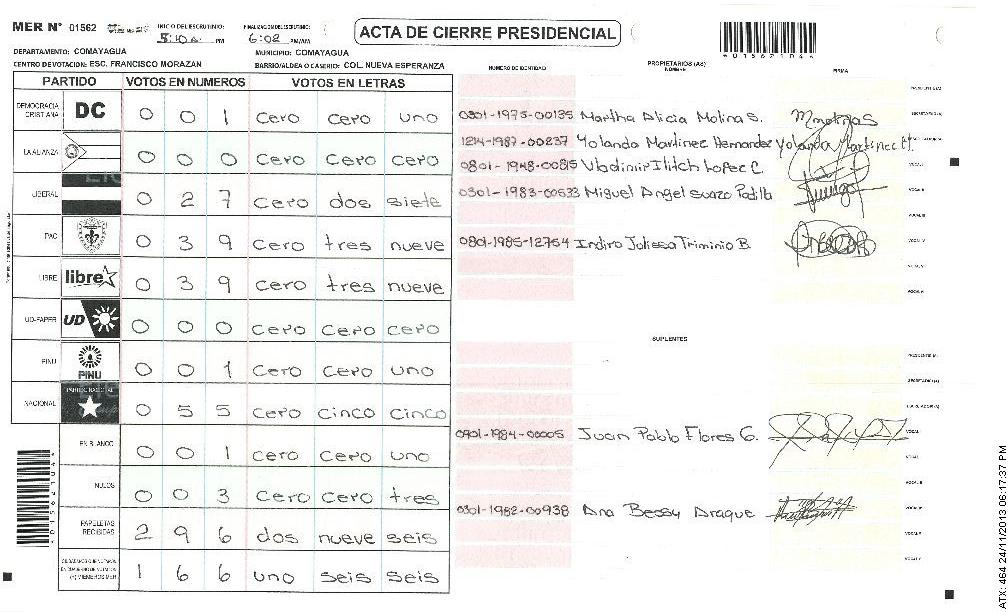 MER N° 01562
INICIO DEL ESCRUTINIO: PM
FINALIZACION DEL ESCRUTINIO: 6:02 PM/AM
ACTA DE CIERRE PRESIDENCIAL
*01562104*
DEPARTAMENTO: COMAYAGUA
MUNICIPIO: COMAYAGUA
CENTRO DE VOTACION: ESC. FRANCISCO MORAZAN
BARRIO/ALDEA O CASERIO: COL. NUEVA ESPERANZA
PARTIDO VOTOS EN NUMEROS VOTOS EN LETRAS
DEMOCRACIA CRISTIANA DC 0 0 1 cero cero uno
LA ALIANZA 0 0 0 cero cero cero
LIBERAL 0 2 7 cero dos siete
PAC 0 3 9 cero tres nueve
LIBRE libre 0 3 9 cero tres nueve
UD-FAPER UD 0 0 0 cero cero cero
PINU PINU 0 0 1 cero cero uno
NACIONAL 0 5 5 cero cinco cinco
EN BLANCO 0 0 1 cero cero uno
NULOS 0 0 3 cero cero tres
PAPELETAS RECIBIDAS 2 9 6 dos nueve seis
CIUDADANOS QUE VOTARON EN CUADERNO DE VOTACION (+) MIEMBROS MER 1 6 6 uno seis seis
*01562104*
NUMERO DE IDENTIDAD
PROPIETARIOS (AS)
NOMBRE
FIRMA
PRESIDENTE (A)
0301-1975-00135 Martha Alicia Molina S. SECRETARIO (A)
1214-1987-00237 Yolanda Martinez Hernandez Yolanda Martinez H.
0801-1948-00815 Vladimir Ilitch Lopez C. VOCAL I
0301-1983-00533 Miguel Angel Suazo Padilla VOCAL II
VOCAL III
0801-1985-12754 Indira Julissa Triminio B. VOCAL IV
VOCAL V
VOCAL VI
SUPLENTES
PRESIDENTE (A)
SECRETARIO (A)
ESCRUTADOR (A)
0901-1984-00005 Juan Pablo Flores G. VOCAL I
VOCAL II
0301-1982-00938 Ana Bessy Araque VOCAL III
VOCAL IV
VOCAL V
ATX: 464 24/11/2013 06:17:37 PM